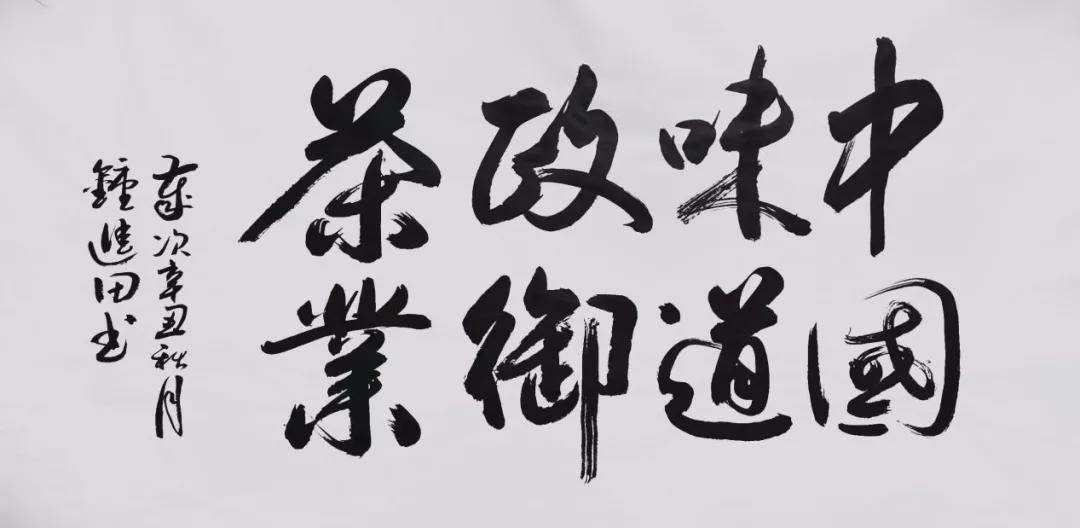 中國
味道
政御
茶業
歲次辛丑秋月
鍾進田书